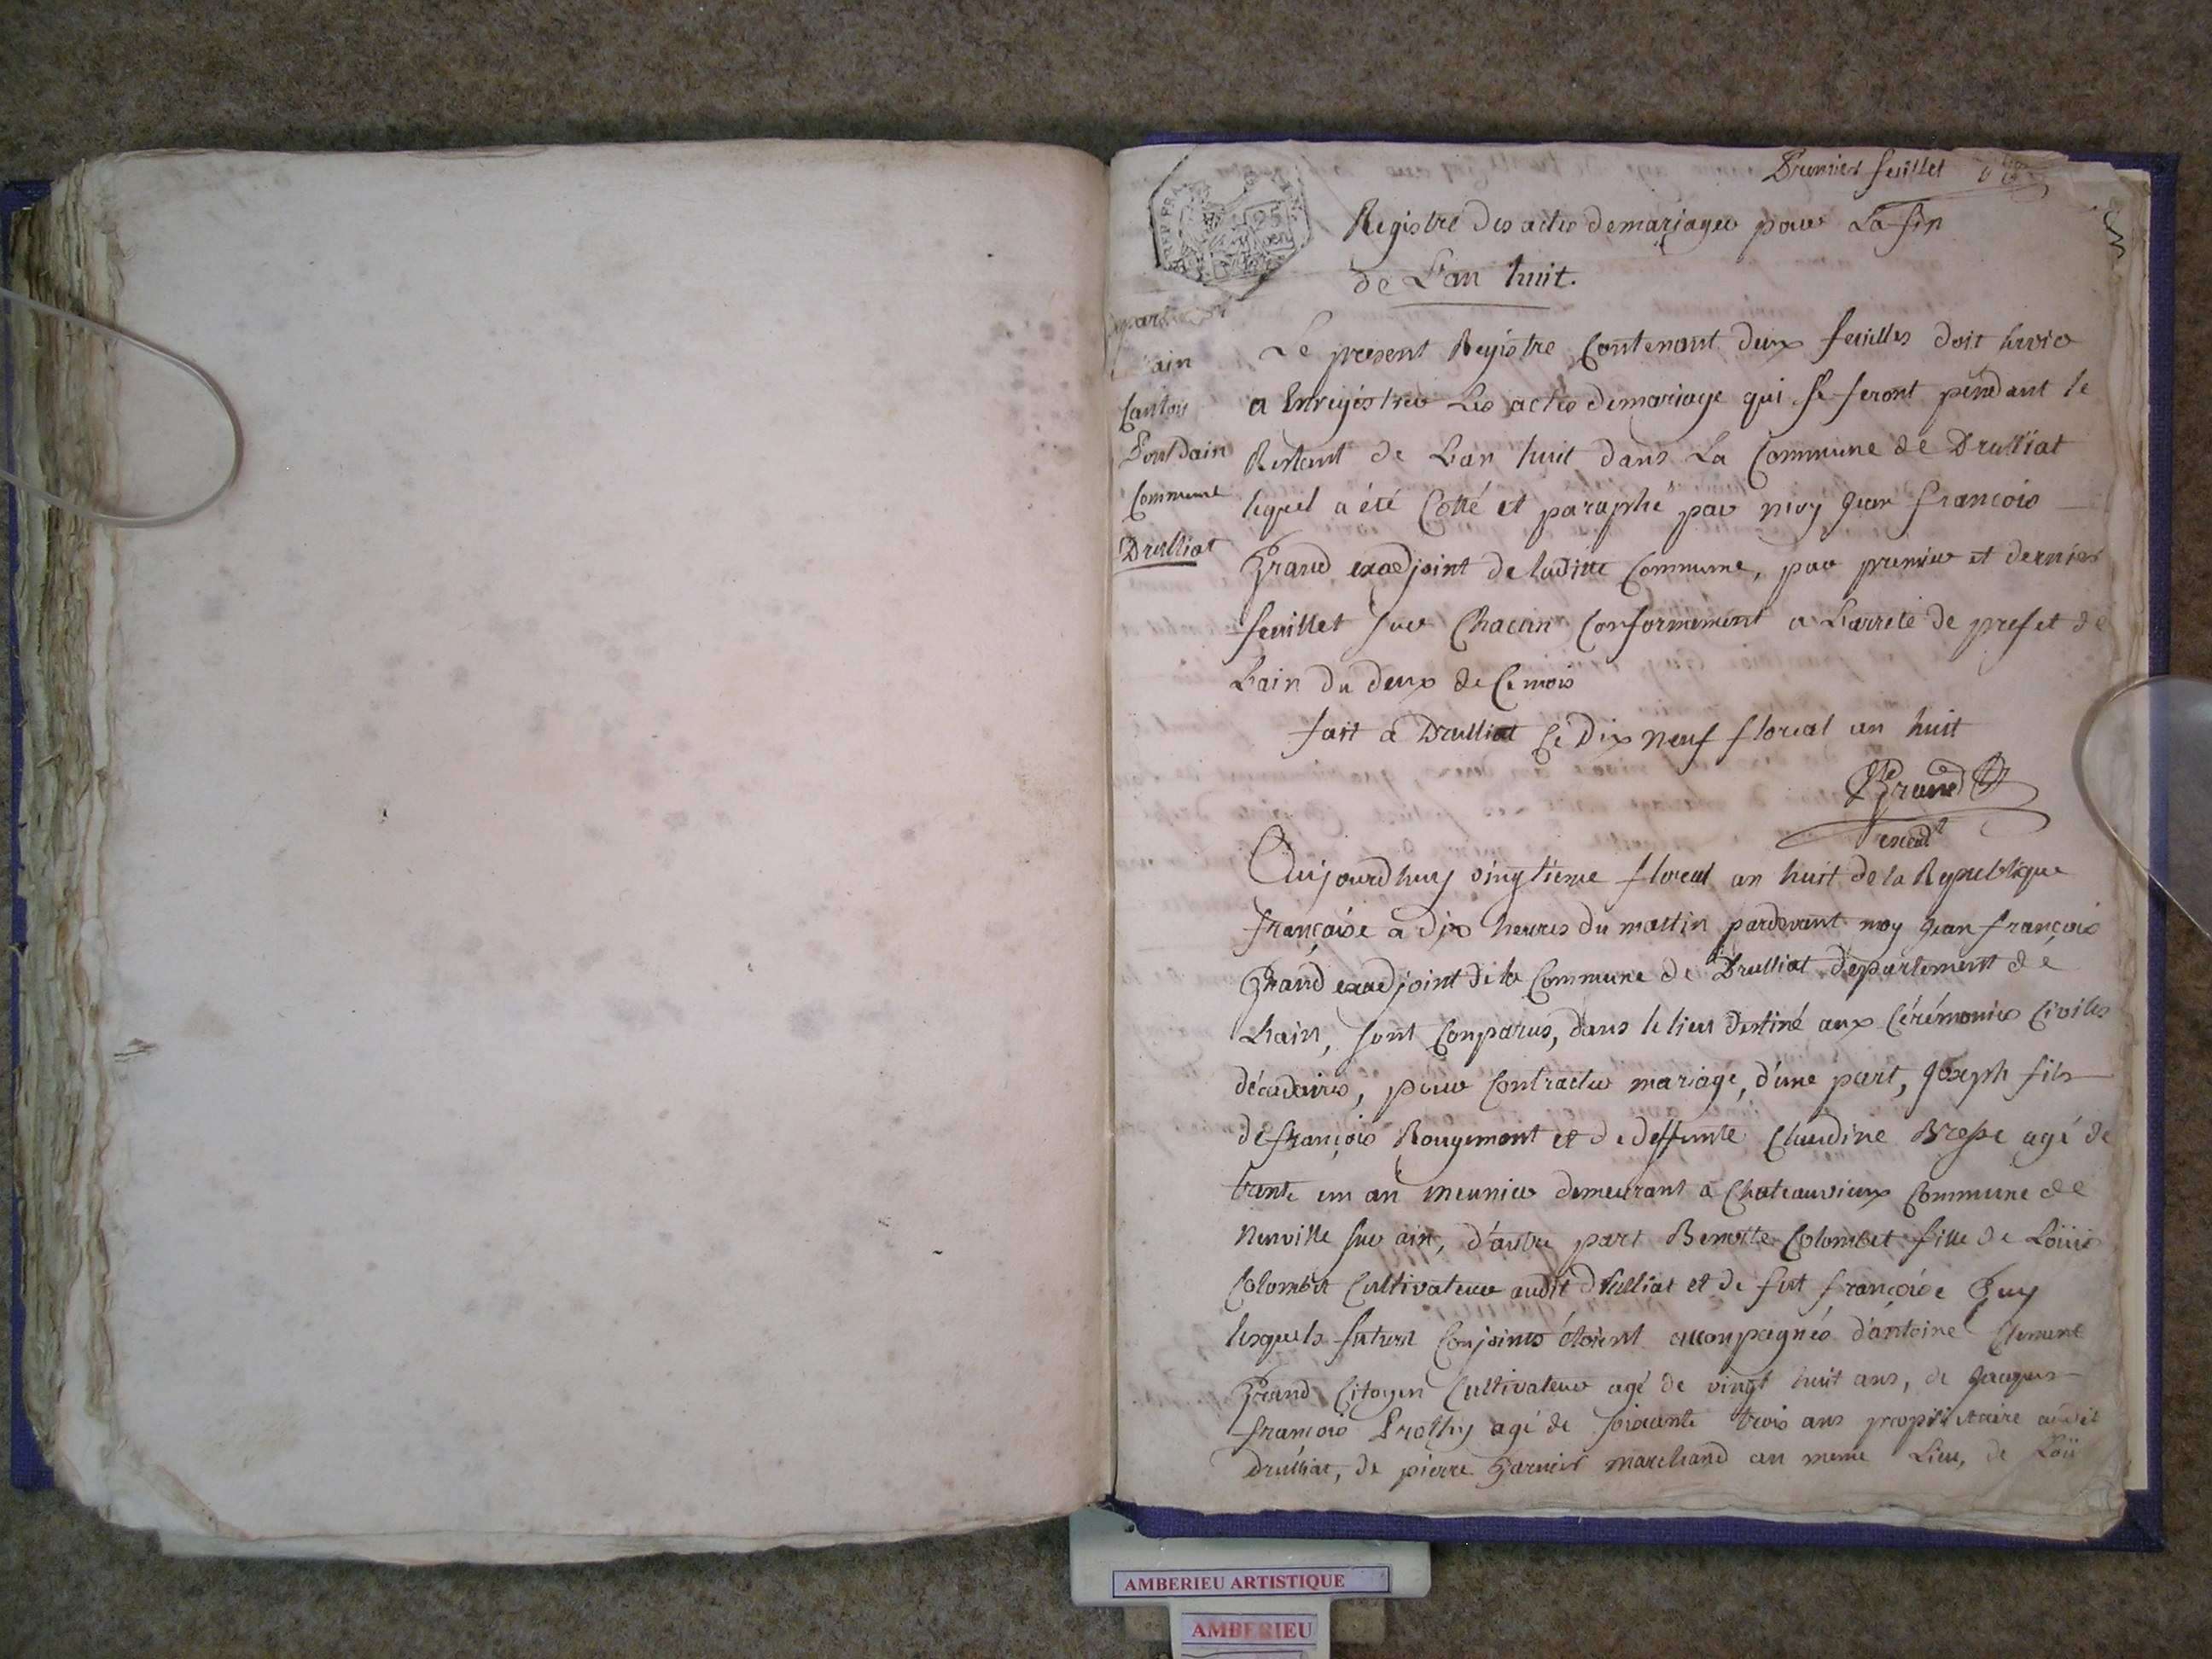 Premier feuillet
Registre des actes de mariages pour La fin
de L'an huit.
Lain
Canton
Pontdain
Commune
Drulliat
Le present Registre Contenant deux feuilles doit servir
a Enregistrer Les actes de mariage qui se feront pendant le
Restant de L'an huit dans La Commune de Drulliat
lequel a été Cotté et paraphé par moy jean françois
Grand exadjoint de laditte Commune, par premier et dernier
feuillet sur Chacun Conformement a L'arreté de prefet de
L'ain du deux de Ce mois
fait a Drulliat le Dix neuf floreal an huit
Grand
Aujourdhuy vingtieme floreal an huit de la Republique
françoise a dix heures du mattin pardevant moy jean françois
Grand exadjoint de la Commune de Drulliat departement de
Lain, sont Comparus, dans le lieu Destiné aux Cérémonies Civiles
décadaires, pour Contracter mariage, d'une part, joseph fils
de françois Rougemont et de deffunte Claudine agé de
trente un an meunier demeurant a Chateauvieux Commune de
Neuville sur ain, d'autre part Benoitte Colombet fille de Loüis
Colombet Cultivateur audit drulliat et de fut françoise Guy
lesquels futurs Conjoints étoient accompagnés d'antoine Clement
Grand Citoyen Cultivateur agé de vingt huit ans, de jacques
françois Prothy agé de soixante trois ans propriétaire audit
Drulliat, de pierre Garnier marchand au meme Lieu, de Loü
AMBERIEU ARTISTIQUE
AMBERIEU